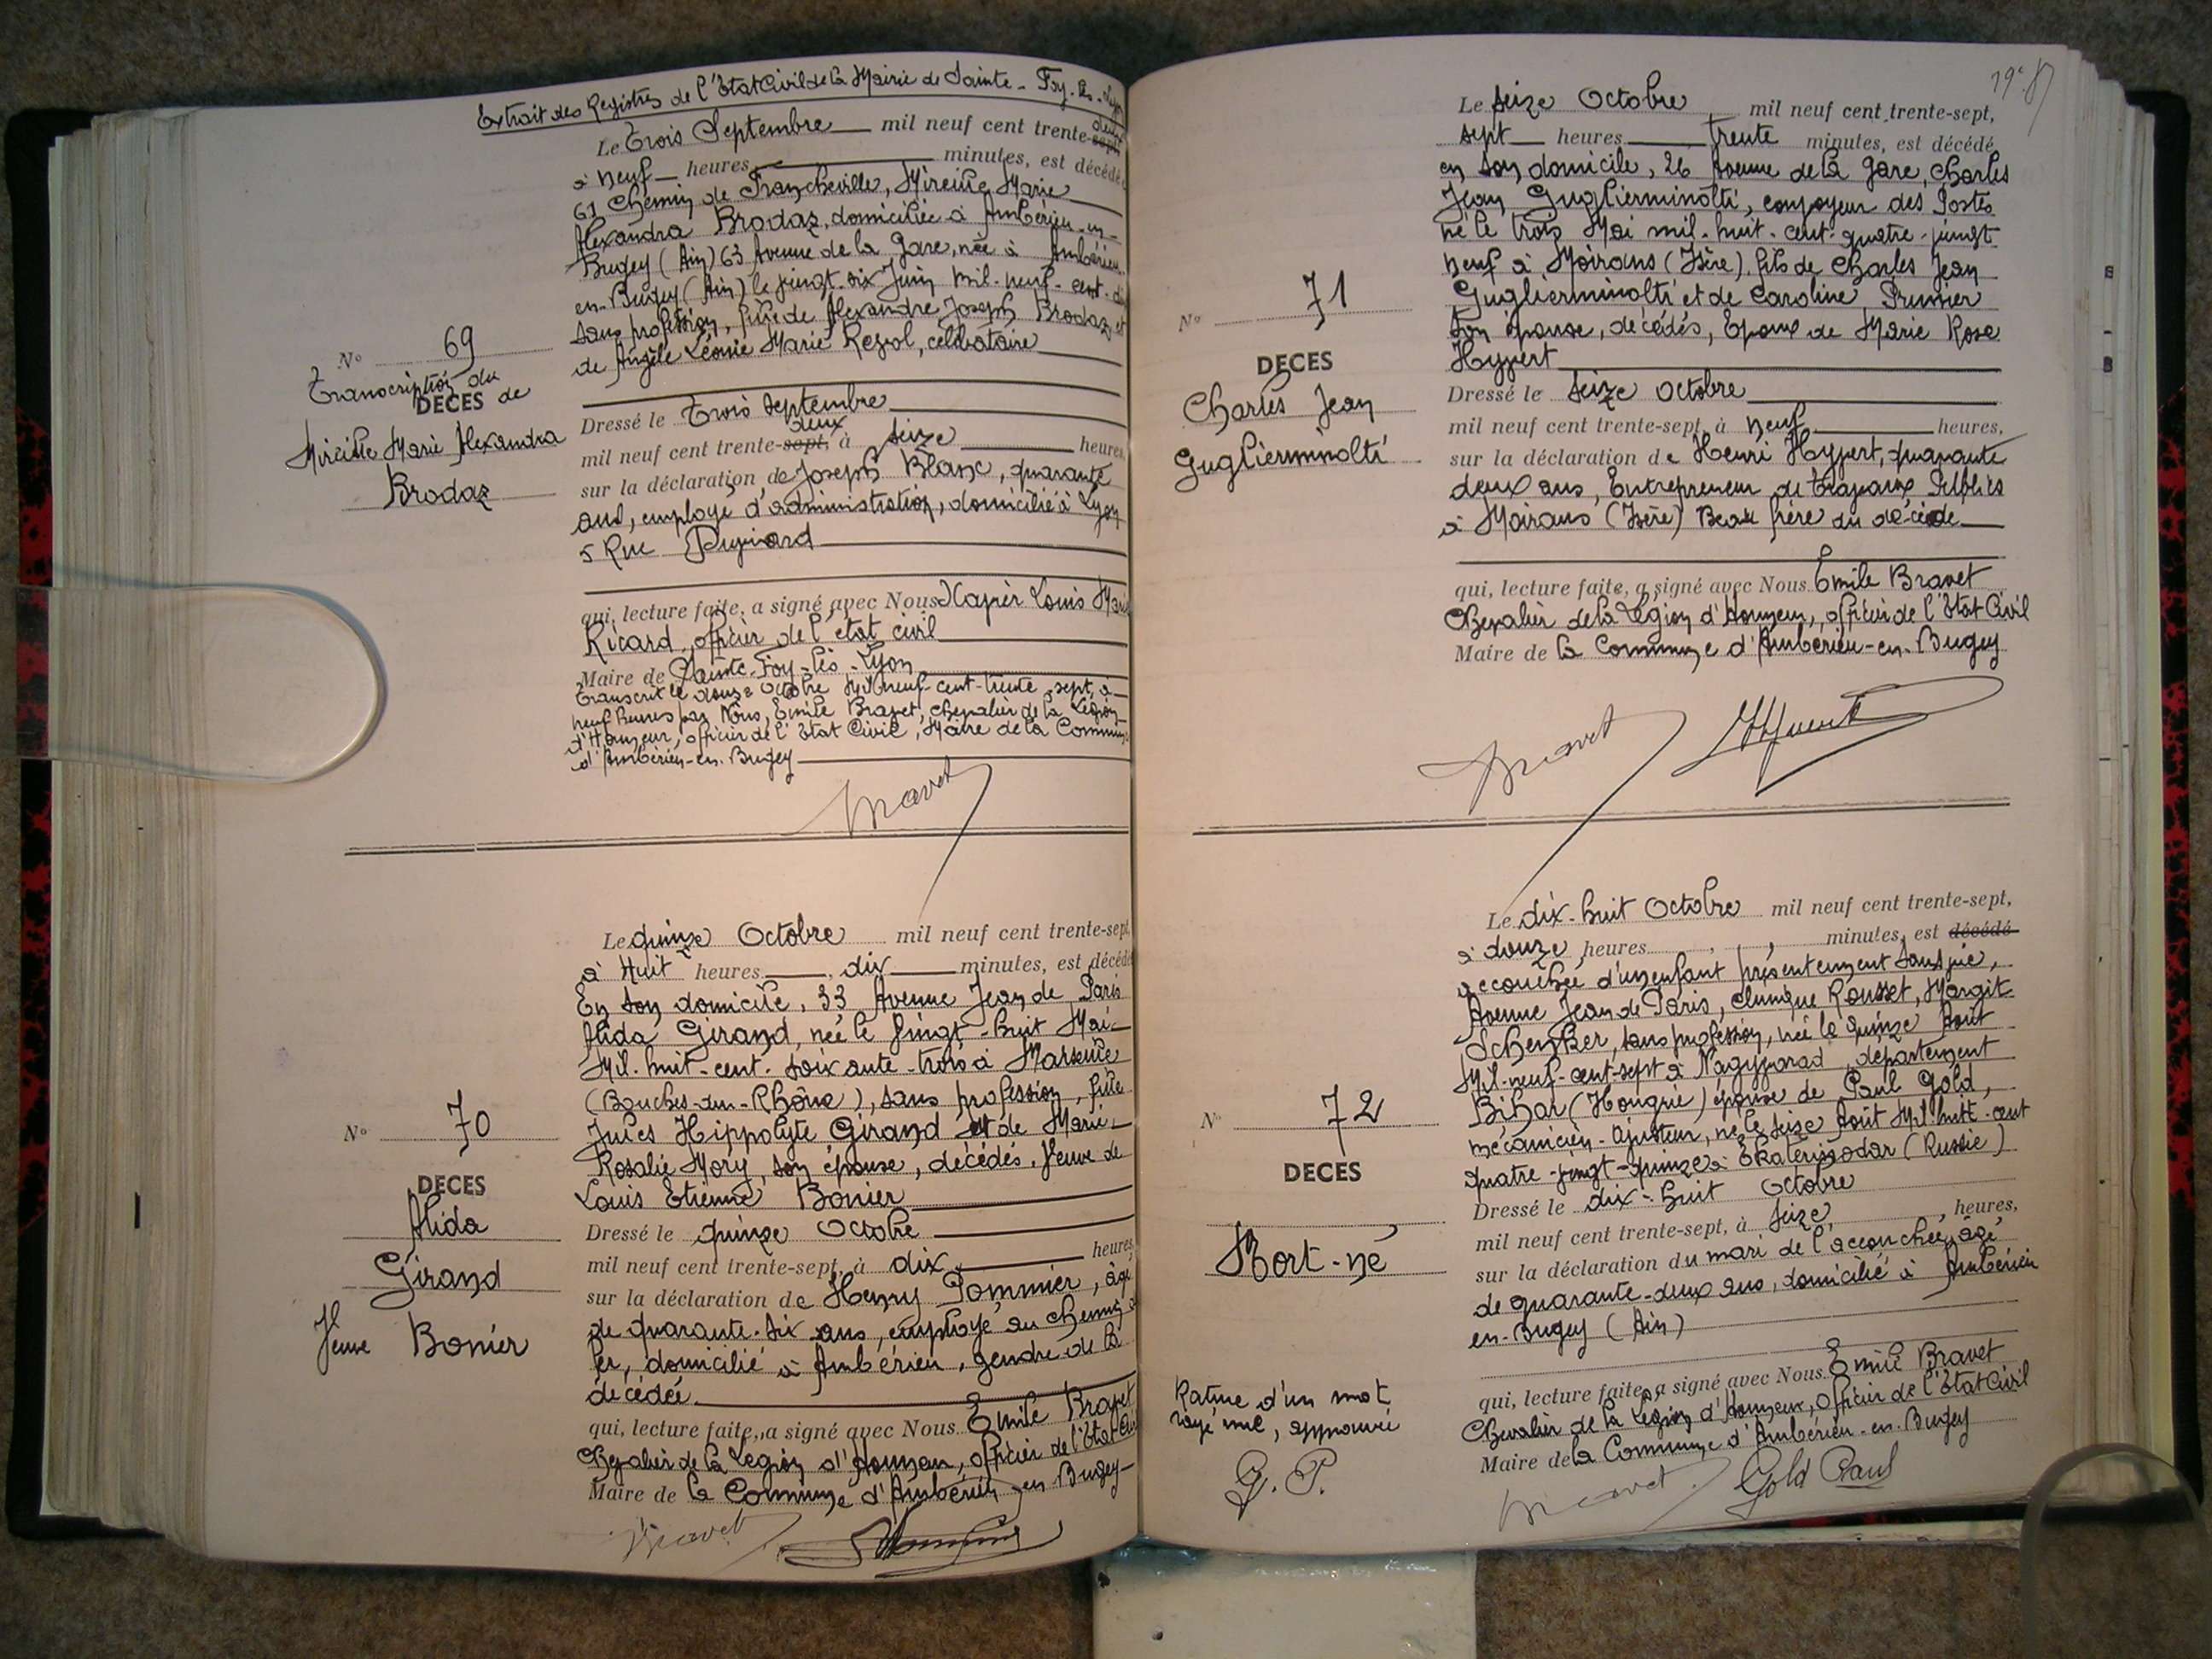 Extrait des Registres de l'Etat Civil de la Mairie de Sainte-Foy-
Le Trois Septembre mil neuf cent trente-sept deux
à neuf heures minutes, est décédée
61 Chemin de Francheville, Mireille Marie
Alexandra Brodaz, domiciliée à Ambérieu-en-
Bugey (Ain) 63 Avenue de la Gare, née à Ambérieu
en-Bugey (Ain) le vingt-six Juin mil-neuf-cent-
sans profession, fille de Alexandre Joseph Brodaz et
de Angèle Léonie Marie, célibataire
N° 69
Transcription du
DECES de
Mireille Marie Alexandra
Brodaz
Dressé le Trois Septembre
mil neuf cent trente-sept, deux à seize heures,
sur la déclaration de Joseph Blanc, quarante
ans, employé d'administration, domicilié à Lyon
5 Rue
qui, lecture faite, a signé avec Nous Xavier Louis Marie
Ricard officier de l'état civil
Maire de Sainte-Foy-lès-Lyon
Transcrit le douze Octobre Mil-neuf-cent-trente-sept, à
neuf heures par Nous, Emile Bravet, chevalier de la Légion
d'Honneur, officier de l'Etat Civil, Maire de la Commune
d'Ambérieu-en-Bugey
Bravet
Le quinze Octobre mil neuf cent trente-sept,
à Huit heures dix minutes, est décédé
En son domicile, 33 Avenue Jean de Paris
Alida Girand, née le vingt-huit Mai
Mil-huit-cent-soixante-trois à Marseille
(Bouches-du-Rhône), sans profession, fille
Jules Hippolyte Girand et de Marie
Rosalie Mory, son épouse, décédés, Veuve de
Louis Etienne Bonier
N° 70
DECES
Alida
Girand
Veuve Bonier
Dressé le quinze Octobre
mil neuf cent trente-sept, à dix heures,
sur la déclaration de Henry Pommier, âgé
de quarante-six ans, employé au chemin de
fer, domicilié à Ambérieu, gendre de la
décédée
qui, lecture faite, a signé avec Nous Emile Bravet
Chevalier de la Légion d'Honneur, officier de l'Etat Civil
Maire de la Commune d'Ambérieu-en-Bugey
Bravet
19e
Le seize Octobre mil neuf cent trente-sept,
sept heures trente minutes, est décédé
en son domicile, 26 Avenue de la Gare, Charles
Jean Guglierminotti, convoyeur des Postes
né le trois Mai mil-huit-cent-quatre-vingt
neuf à Moirans (Isère) fils de Charles Jean
Guglierminotti et de Caroline Prunier
son épouse, décédés, Epoux de Marie Rose
Hyvert
N° 71
DECES
Charles Jean
Guglierminotti
Dressé le seize Octobre
mil neuf cent trente-sept, à neuf heures,
sur la déclaration de Henri Hyvert, quarante
deux ans, Entrepreneur de travaux Publics
à Moirans (Isère) Beau frère du décédé
qui, lecture faite, a signé avec Nous Emile Bravet
Chevalier de la Légion d'Honneur, officier de l'Etat Civil
Maire de la Commune d'Ambérieu-en-Bugey
Bravet Hyvert
Le dix-huit Octobre mil neuf cent trente-sept,
à douze heures, minutes, est décédé
accouchée d'un enfant présentement sans vie,
Avenue Jean de Paris, clinique Rousset, Margit
Schenker, sans profession, née le quinze Août
Mil-neuf-cent-sept à Nagyvarad, département
Bihar (Hongrie) épouse de Paul Gold,
mécanicien-ajusteur, né le seize Août Mil-huit-cent
quatre-vingt-quinze à Ekaterinodar (Russie)
N° 72
DECES
Mort-né
Dressé le dix-huit Octobre
mil neuf cent trente-sept, à seize, heures,
sur la déclaration du mari de l'accouchée, âgé
de quarante-deux ans, domicilié à Ambérieu
en-Bugey (Ain)
Rature d'un mot
rayé nul, approuvée
G. P.
qui, lecture faite, a signé avec Nous Emile Bravet
Chevalier de la Légion d'Honneur, Officier de l'Etat Civil
Maire de la Commune d'Ambérieu-en-Bugey
Bravet Gold Paul